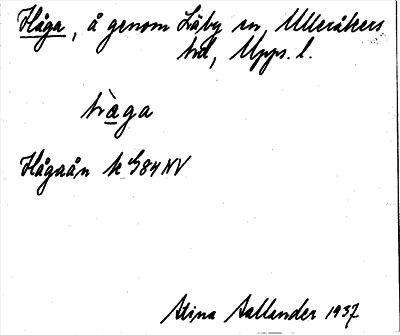 Håga, å genom Läby sn, Ulleråkers
hd, Upps. l.
hàga
Hågaån k G84 NV
Stina Aallander 1937